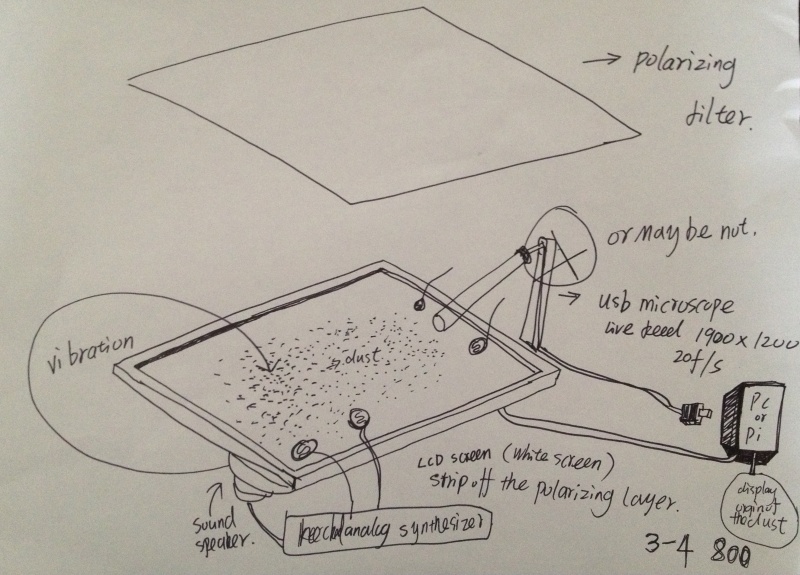 → polarizing
filter.
or maybe not.
→ usb microscope
Live feed 1900 x 1200
20f/s
vibration
→ dust
S
S
PC
or
Pi
LCD screen (white screen)
strip off the polarizing layer.
sound
speaker.
analog synthesizer
display
origin of
the dust
3-4 800